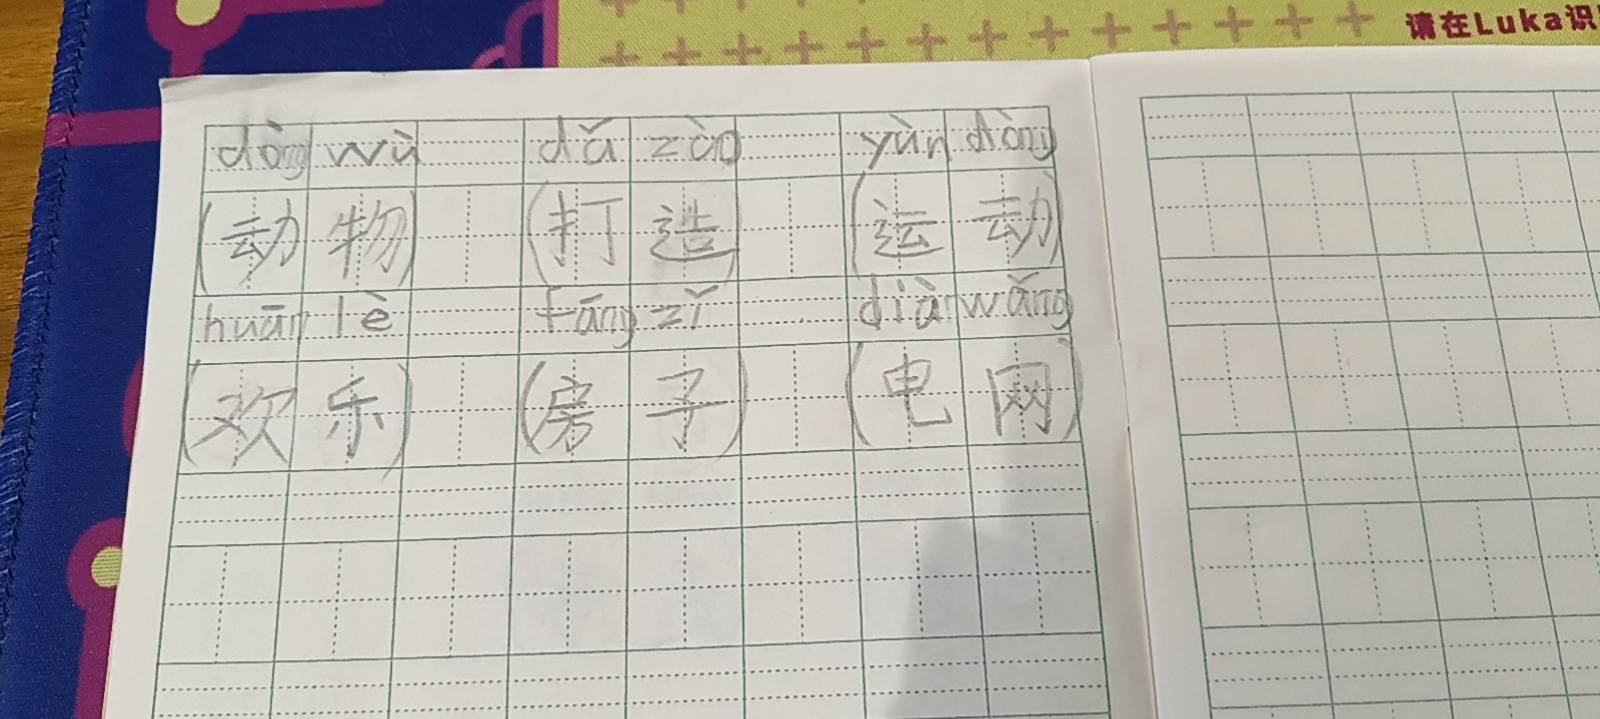 请在Luka识
dòng wù dǎ zào yùn dòng
(动物) (打造) (运动)
huān lè fāng zǐ diàn wǎng
(欢乐) (房子) (电网)